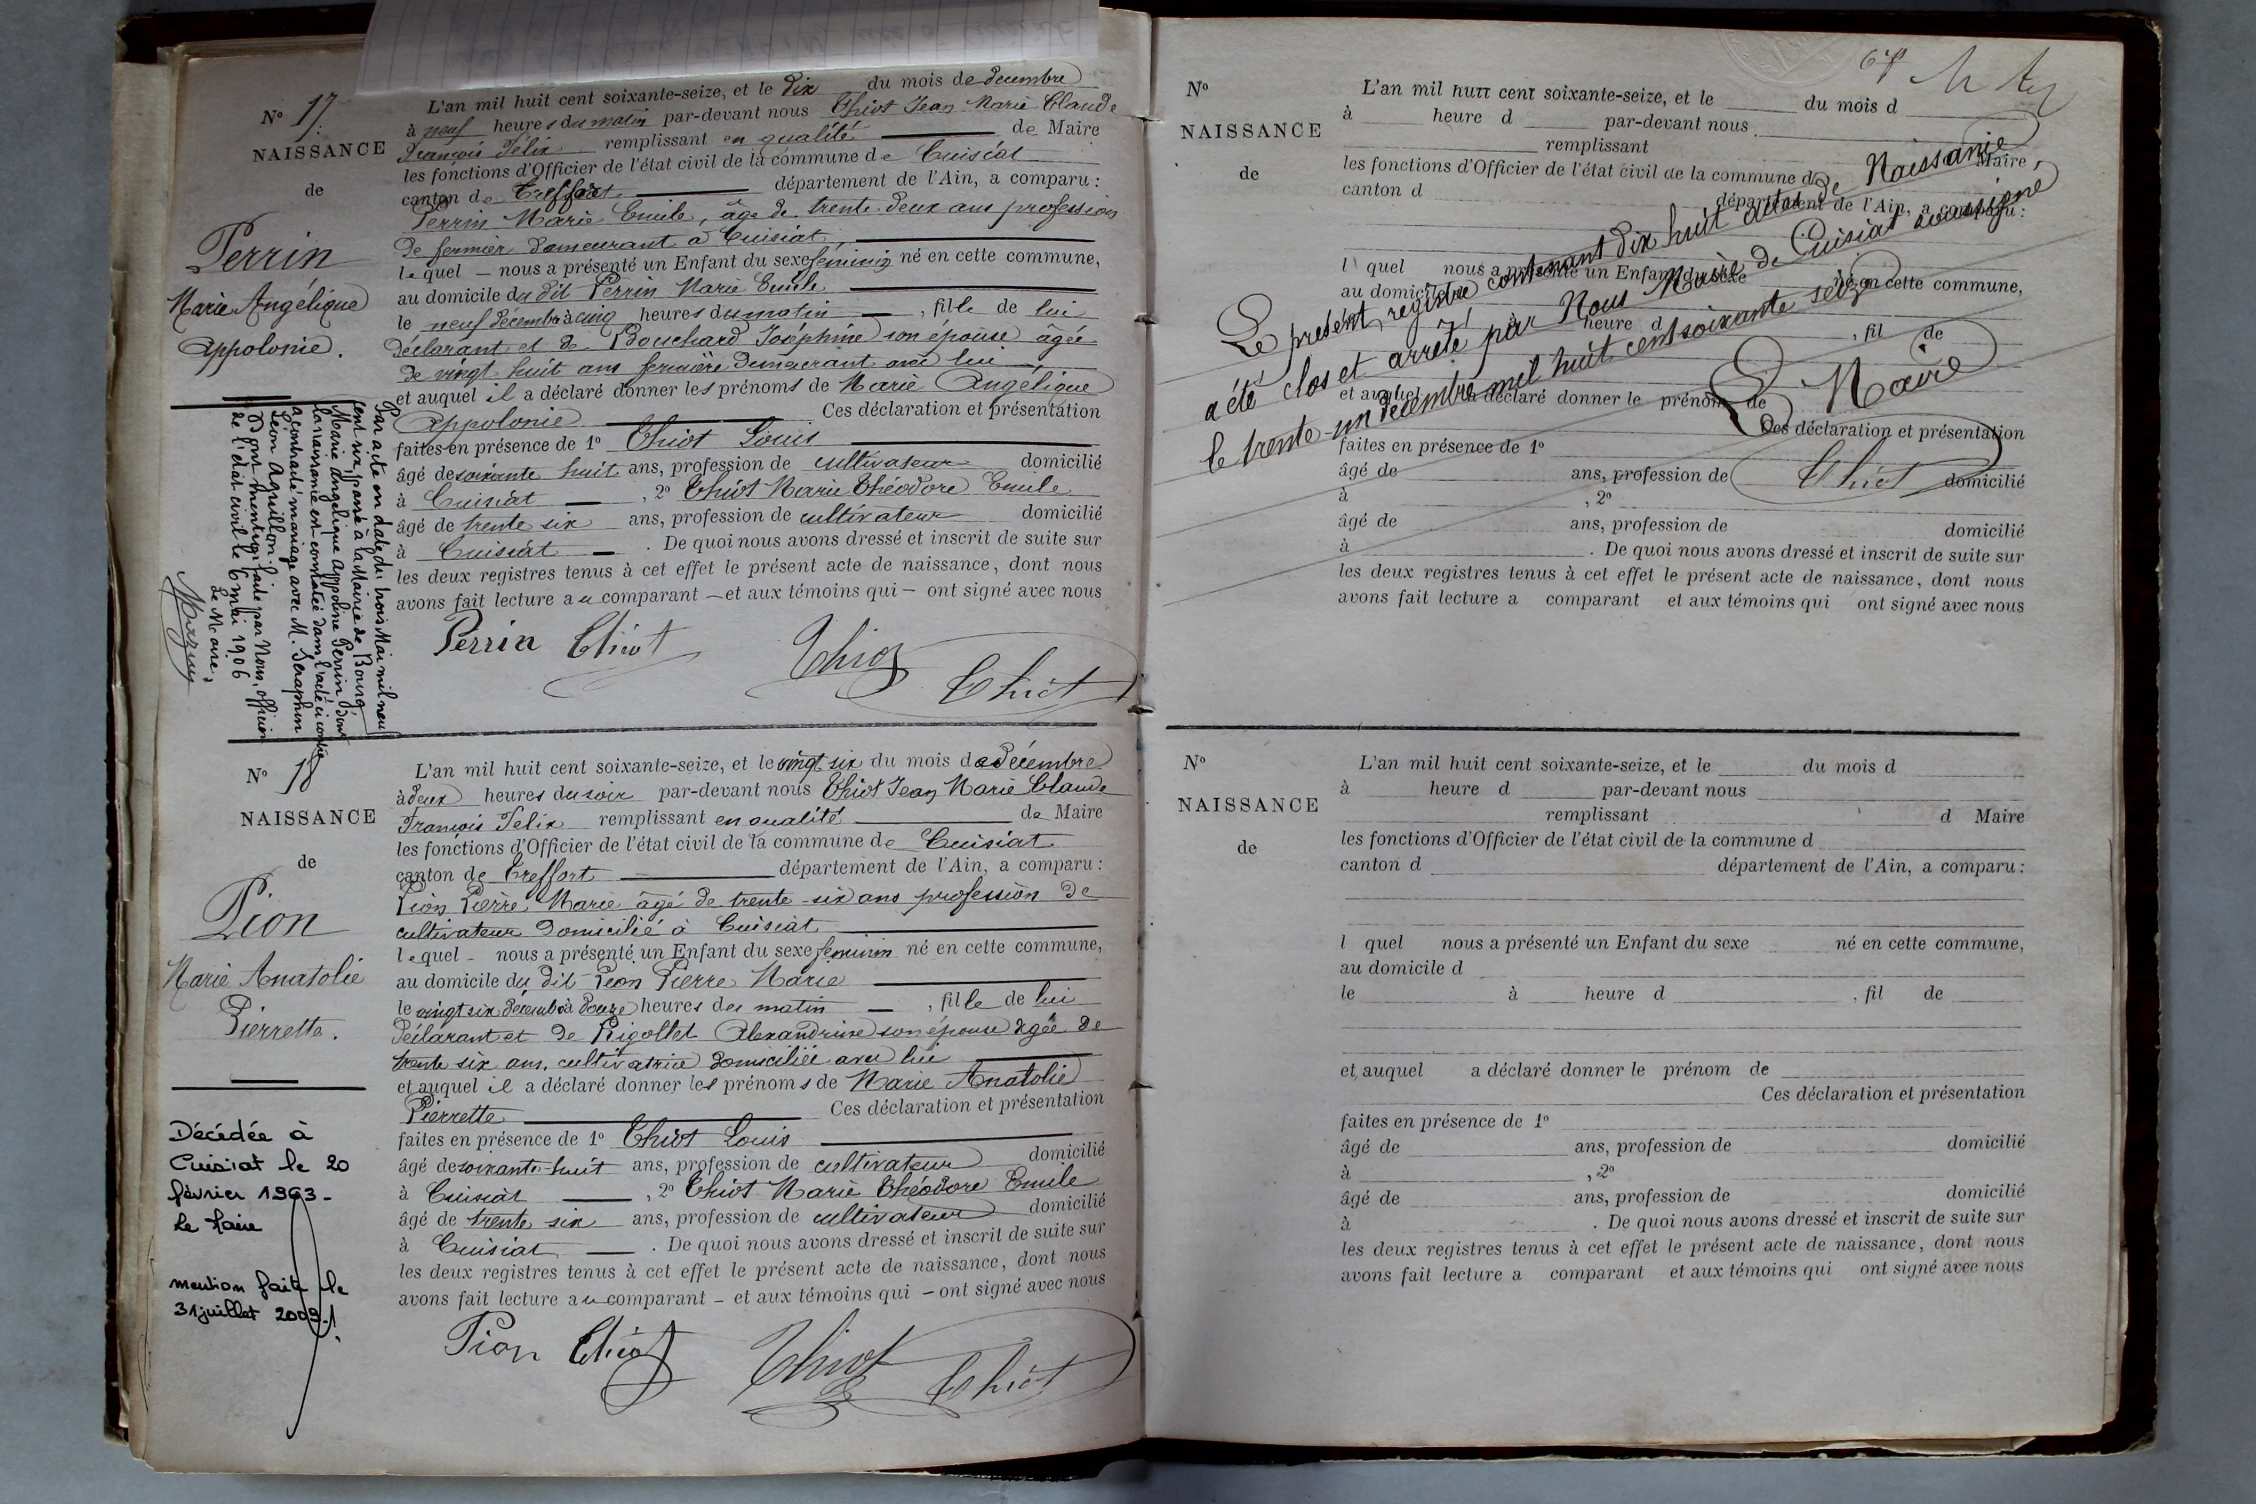 N° 17.
NAISSANCE
de
Perrin
Marie Angélique
Appolonie.
L'an mil huit cent soixante-seize, et le dix du mois de decembre
à neuf heures du matin par-devant nous Chiot Jean Marie Claude
François Félix remplissant en qualité de Maire
les fonctions d'Officier de l'état civil de la commune de Cuisiat
canton de Treffort département de l'Ain, a comparu :
Perrin Marie Emile, âgé de trente deux ans profession
de fermier demeurant à Cuisiat
lequel — nous a présenté un Enfant du sexe féminin né en cette commune,
au domicile du dit Perrin Marie Emile
le neuf décembre à cinq heures du matin — , fille de lui
déclarant et de Bouchard Joséphine son épouse âgée
de vingt huit ans fermière demeurant avec lui
et auquel il a déclaré donner les prénoms de Marie Angélique
Appolonie Ces déclaration et présentation
faites en présence de 1° Chiot Louis
âgé de soixante huit ans, profession de cultivateur domicilié
à Cuisiat — , 2° Chiot Marie Théodore Emile
âgé de trente six ans, profession de cultivateur domicilié
à Cuisiat — . De quoi nous avons dressé et inscrit de suite sur
les deux registres tenus à cet effet le présent acte de naissance, dont nous
avons fait lecture au comparant — et aux témoins qui — ont signé avec nous
Perrin Chiot Chiot Chiot
Par acte en date du trois Mai mil neuf
cent six, passé à la Mairie de Bourg,
Marie Angélique Appoline Perrin dont
la naissance est constatée dans l'acte ci-contre
a contracté mariage avec M. Seraphin
Léon Aguillon.
Dont mention faite par Nous, officier
de l'état civil le 6 mai 1906
Le Maire,
N° 18
NAISSANCE
de
Pion
Marie Anatolie
Pierrette.
Décédée à
Cuisiat le 20
février 1963-
Le Maire
mention faite le
31 juillet 2003-1
L'an mil huit cent soixante-seize, et le vingt six du mois de décembre
à deux heures du soir par-devant nous Chiot Jean Marie Claude
François Felix remplissant en qualité de Maire
les fonctions d'Officier de l'état civil de la commune de Cuisiat
canton de Treffort département de l'Ain, a comparu :
Pion Pierre Marie âgé de trente-six ans profession de
cultivateur domicilié à Cuisiat
lequel - nous a présenté un Enfant du sexe feminin né en cette commune,
au domicile du dit Pion Pierre Marie
le vingt six décembre à douze heures du matin — , fille de lui
déclarant et de Rigollet Alexandrine son épouse agée de
trente six ans, cultivatrice domiciliée avec lui
et auquel il a déclaré donner les prénoms de Marie Anatolie
Pierrette Ces déclaration et présentation
faites en présence de 1° Chiot Louis
âgé de soixante-huit ans, profession de cultivateur domicilié
à Cuisiat — , 2° Chiot Marie Théodore Emile
âgé de trente six ans, profession de cultivateur domicilié
à Cuisiat — . De quoi nous avons dressé et inscrit de suite sur
les deux registres tenus à cet effet le présent acte de naissance, dont nous
avons fait lecture au comparant - et aux témoins qui - ont signé avec nous
Pion Chiot Chiot Chiot
N°
NAISSANCE
de
L'an mil huit cent soixante-seize, et le du mois d
à heure d par-devant nous
remplissant Maire
les fonctions d'Officier de l'état civil de la commune d
canton d département de l'Ain, a comparu :
l quel nous a présenté un Enfant du sexe né en cette commune,
au domicile d
à heure d , fil de
et auquel a déclaré donner le prénom de
Ces déclaration et présentation
faites en présence de 1°
âgé de ans, profession de domicilié
à , 2°
âgé de ans, profession de domicilié
à . De quoi nous avons dressé et inscrit de suite sur
les deux registres tenus à cet effet le présent acte de naissance, dont nous
avons fait lecture a comparant et aux témoins qui ont signé avec nous
Le présent registre contenant dix huit actes de Naissance
a été clos et arrêté par Nous Maire de Cuisiat soussigné
le trente-un décembre mil huit cent soixante seize
Le Maire
Chiot
N°
NAISSANCE
de
L'an mil huit cent soixante-seize, et le du mois d
à heure d par-devant nous
remplissant d Maire
les fonctions d'Officier de l'état civil de la commune d
canton d département de l'Ain, a comparu :
l quel nous a présenté un Enfant du sexe né en cette commune,
au domicile d
le à heure d , fil de
et auquel a déclaré donner le prénom de
Ces déclaration et présentation
faites en présence de 1°
âgé de ans, profession de domicilié
à , 2°
âgé de ans, profession de domicilié
à . De quoi nous avons dressé et inscrit de suite sur
les deux registres tenus à cet effet le présent acte de naissance, dont nous
avons fait lecture a comparant et aux témoins qui ont signé avec nous